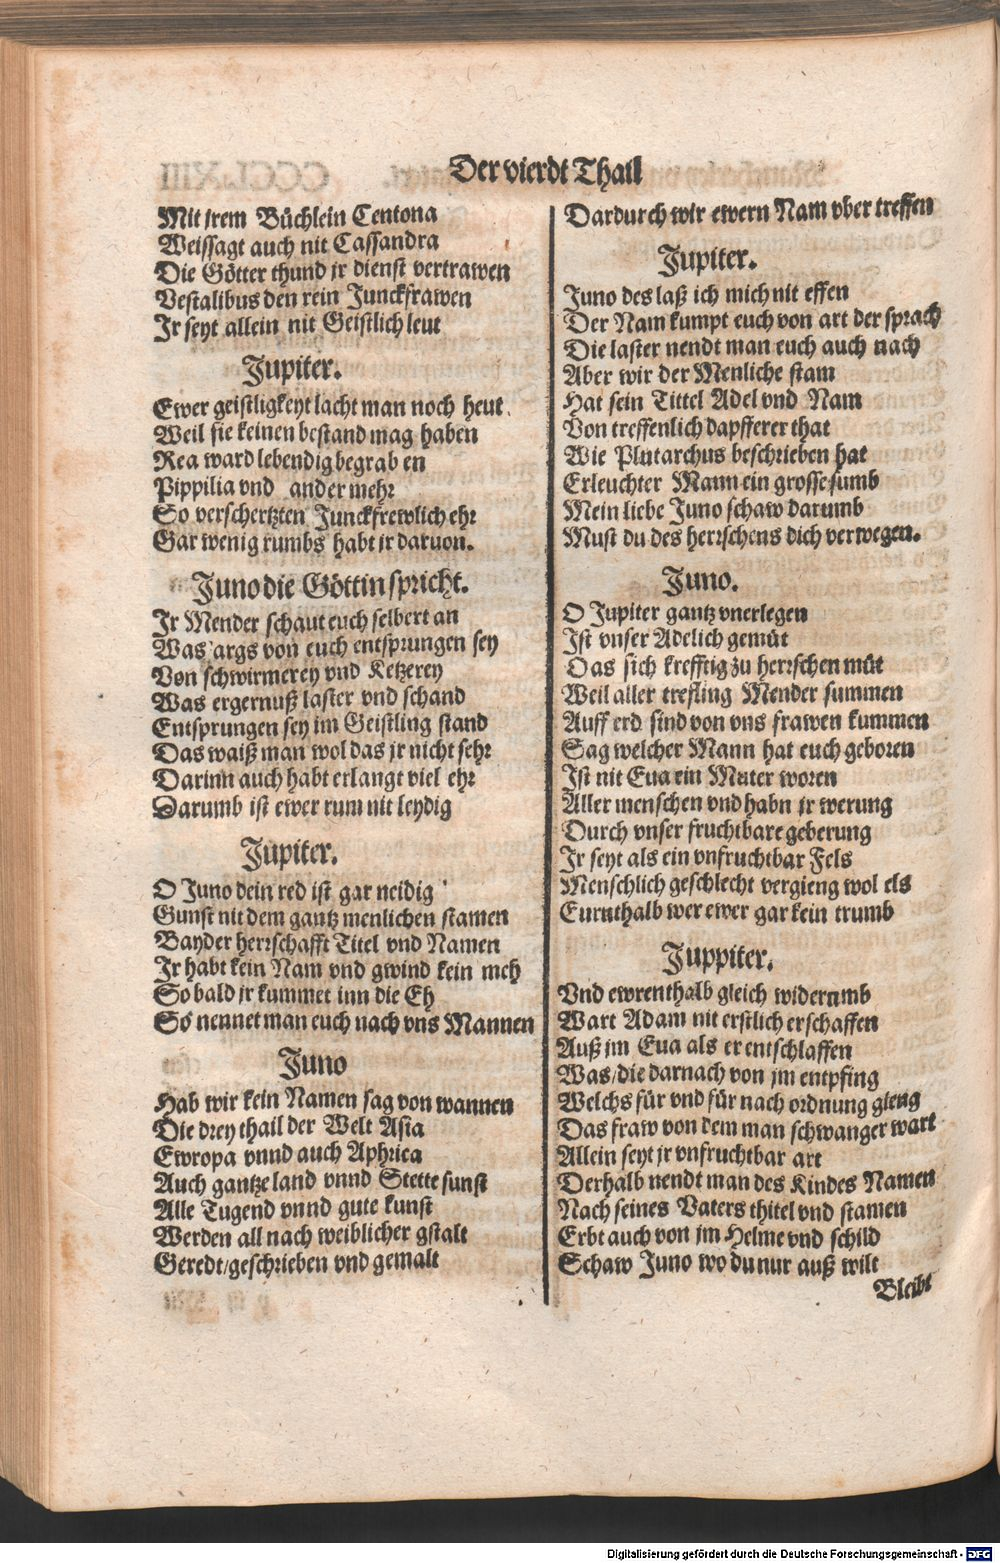 Der vierdt Thail
Mit jrem Büchlein Centona
Weissagt auch nit Cassandra
Die Götter thund jr dienst vertrawen
Vestalibus den rein Junckfrawen
Jr seyt allein nit Geistlich leut
Jupiter.
Ewer geistligkeyt lacht man noch heut
Weil sie keinen bestand mag haben
Rea ward lebendig begrab en
Pippilia vnd ander mehr
So verschertzten Junckfrewlich ehr
Gar wenig rumbs habt jr daruon.
Juno die Göttin spricht.
Jr Mender schaut euch selbert an
Was args von euch entsprungen sey
Von schwirmerey vnd Ketzerey
Was ergernuß laster vnd schand
Entsprungen sey im Geistling stand
Das waiß man wol das jr nicht sehr
Darinn auch habt erlangt viel ehr
Darumb ist ewer rum nit leydig
Jupiter.
O Juno dein red ist gar neidig
Gunst nit dem gantz menlichen stamen
Bayder herrschafft Titel vnd Namen
Jr habt kein Nam vnd gwind kein meh
So bald jr kummet inn die Eh
So nennet man euch nach vns Mannen
Juno
Hab wir kein Namen sag von wannen
Die drey thail der Welt Asia
Ewropa vnnd auch Aphrica
Auch gantze land vnnd Stette sunst
Alle Tugend vnnd gute kunst
Werden all nach weiblicher gstalt
Geredt/geschrieben vnd gemalt
Dardurch wir ewern Nam vber treffen
Jupiter.
Juno des laß ich mich nit effen
Der Nam kumpt euch von art der sprach
Die laster nendt man euch auch nach
Aber wir der Menliche stam
Hat sein Tittel Adel vnd Nam
Von treffenlich dapfferer that
Wie Plutarchus beschrieben hat
Erleuchter Mann ein grosse sumb
Mein liebe Juno schaw darumb
Must du des herrschens dich verwegen.
Juno.
O Jupiter gantz vnerlegen
Jst vnser Adelich gemüt
Das sich krefftig zu herrschen müt
Weil aller trefling Mender summen
Auff erd sind von vns frawen kummen
Sag welcher Mann hat euch geboren
Jst nit Eua ein Muter woren
Aller menschen vnd habn jr werung
Durch vnser fruchtbare geberung
Jr seyt als ein vnfruchtbar Fels
Menschlich geschlecht vergieng wol els
Eurnthalb wer ewer gar kein trumb
Juppiter.
Vnd ewrenthalb gleich widerumb
Wart Adam nit erstlich erschaffen
Auß jm Eua als er entschlaffen
Was/die darnach von jm entpfing
Welchs für vnd für nach ordnung gieng
Das fraw von dem man schwanger wart
Allein seyt jr vnfruchtbar art
Derhalb nendt man des Kindes Namen
Nach seines Vaters thitel vnd stamen
Erbt auch von jm Helme vnd schild
Schaw Juno wo du nur auß wilt
Bleibt
Digitalisierung gefördert durch die Deutsche Forschungsgemeinschaft - DFG